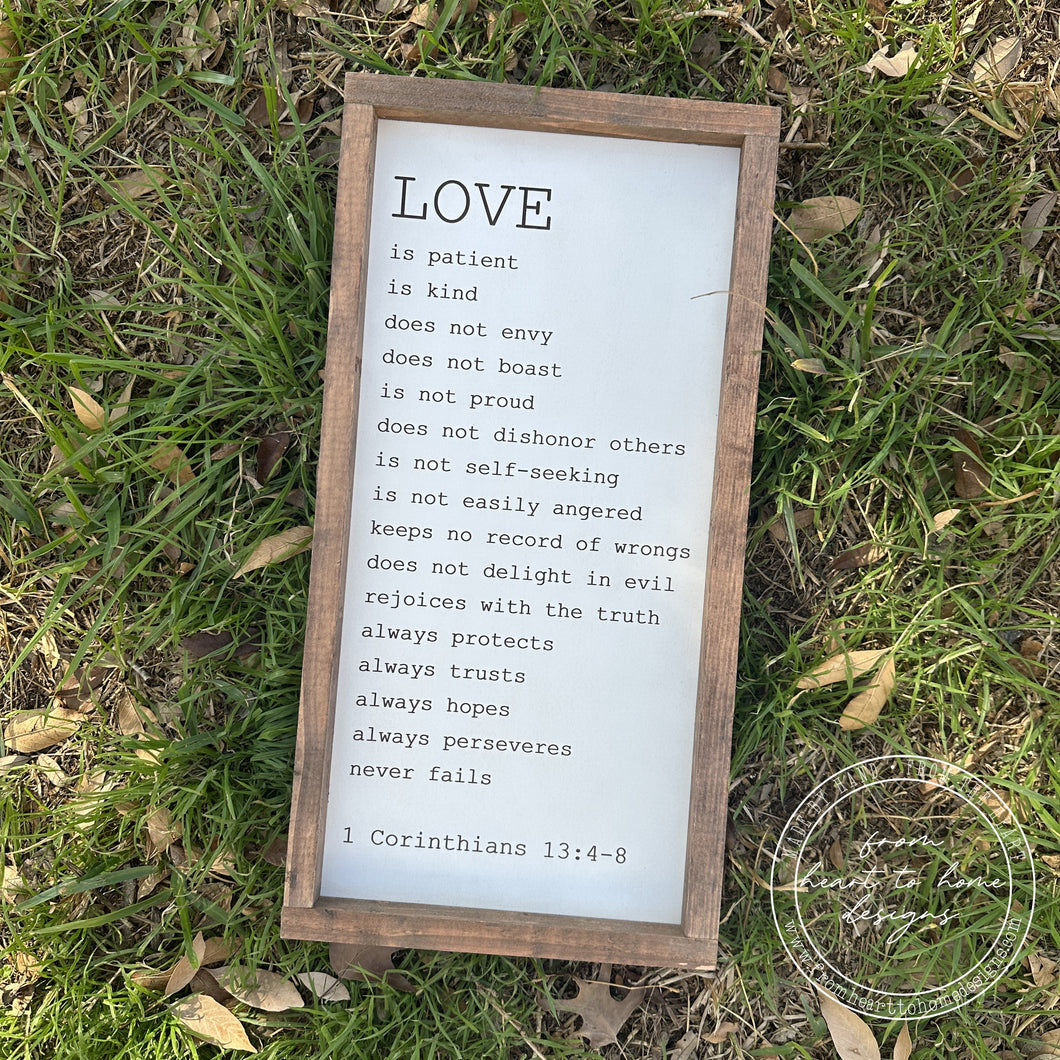 LOVE
is patient
is kind
does not envy
does not boast
is not proud
does not dishonor others
is not self-seeking
is not easily angered
keeps no record of wrongs
does not delight in evil
rejoices with the truth
always protects
always trusts
always hopes
always perseveres
never fails
1 Corinthians 13:4-8
from
heart to home
designs
www.fromhearttohomedesigns.com